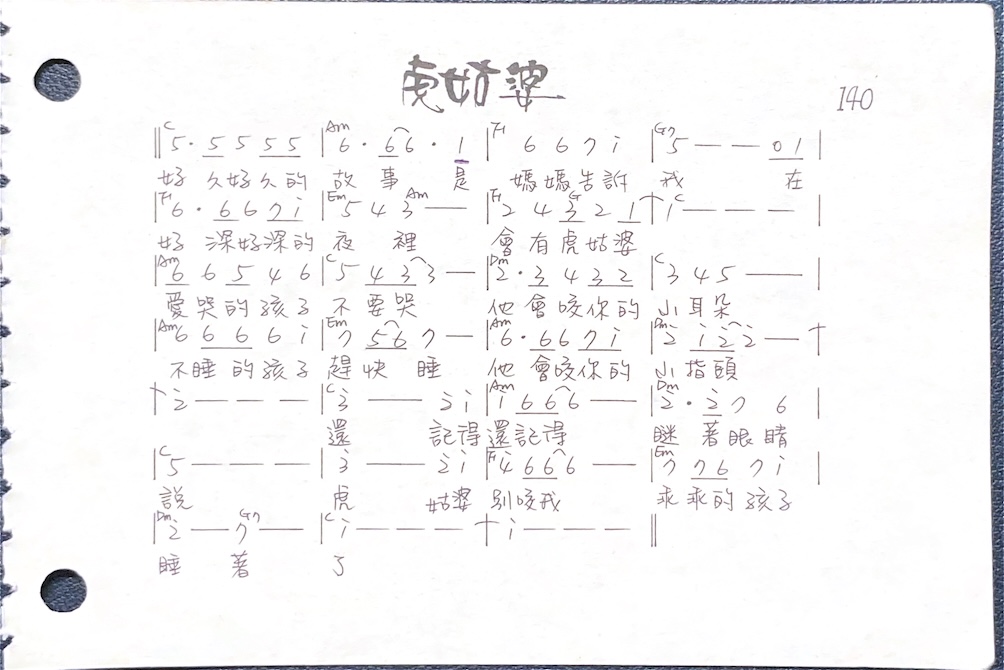 虎姑婆
140
‖C 5· 5 5 5 5 |Am 6· 6 6· 1 |F 6 6 7 i |G7 5 — — 0 1 |
好 久好久的 故 事 是 媽媽告訴 我 在
|F 6· 6 6 7 i |Em 5 4 3 Am — |F 2 4 3 G 2 1 † i C — — — |
好 深好深的 夜 裡 會 有虎姑婆
|Am 6 6 5 4 6 |C 5 4 3 3 — |Dm 2· 3 4 3 2 |C 3 4 5 — — |
愛哭的孩子 不要哭 他會咬你的 小耳朵
|Am 6 6 6 6 6 i |Em 7 5 6 7 — |Am 6· 6 6 7 i |Dm 2 i 2 2 — †
不睡的孩子 趕快 睡 他 會咬你的 小指頭
† 2 — — — |C 3 — — 2 i |Am i 6 6 6 — |Dm 2· 2 7 6 |
還 記得還記得 瞇 著眼睛
|C 5 — — — | 3 — — 2 i |F 4 6 6 6 — |Em 7 7 6 7 i |
說 虎 姑婆 別咬我 乖乖的孩子
|Dm 2 — G7 7 — |C i — — — † i — — — ‖
睡 著 了